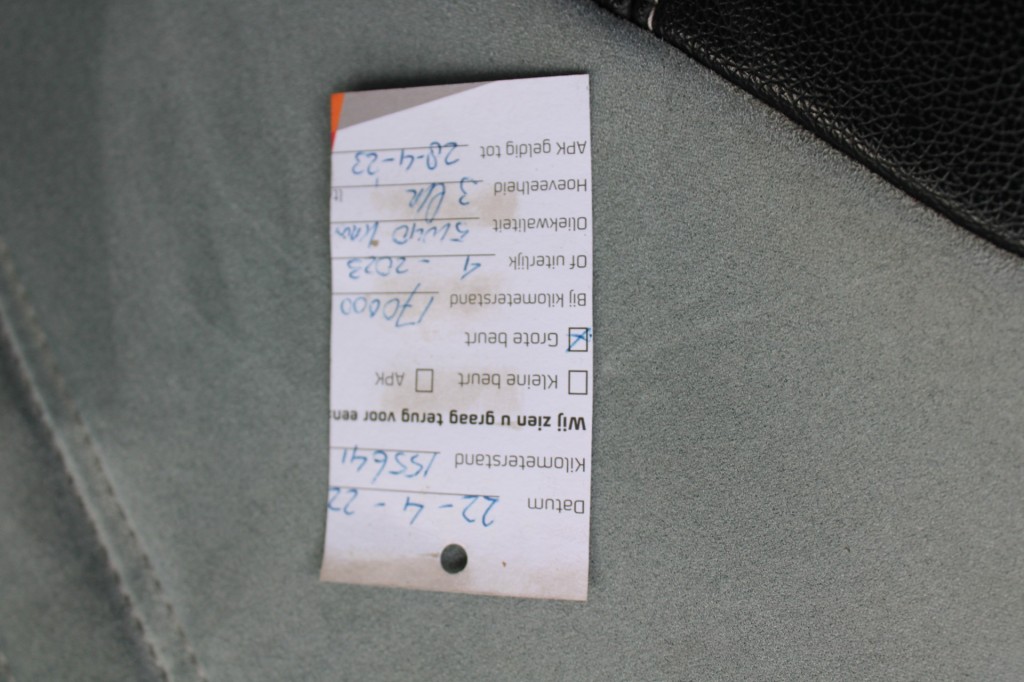 Datum 22-4-22
Kilometerstand 155641
Wij zien u graag terug voor een:
Kleine beurt APK
Grote beurt
Bij kilometerstand 170000
Of uiterlijk 4-2023
Oliekwaliteit 5W40
Hoeveelheid 3 lt
APK geldig tot 28-4-23